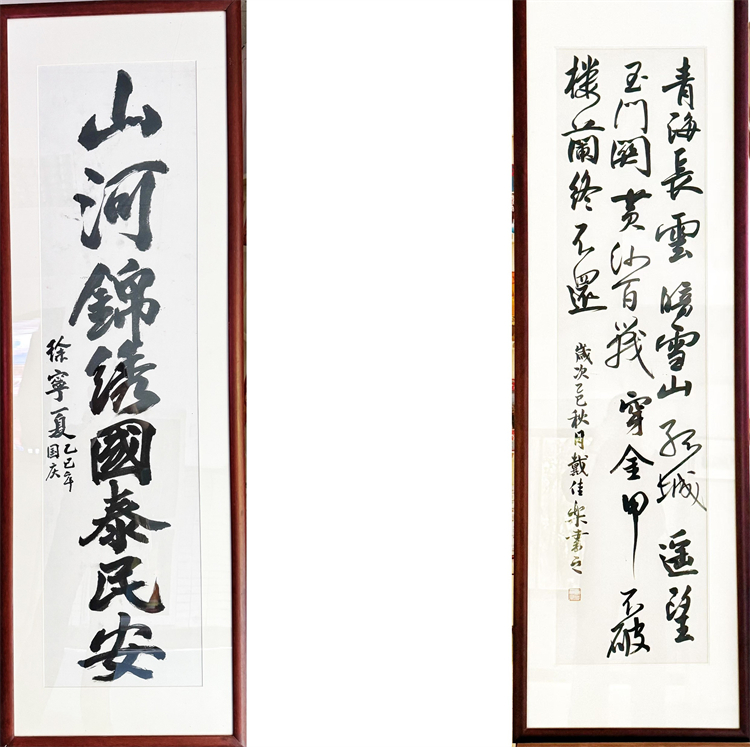 山河錦綉國泰民安
徐寧夏
乙巳年
国庆
青海長雲暗雪山孤城遥望
玉门關黄沙百戰穿金甲不破
楼蘭終不還
歲次乙巳秋月戴佳樂書之